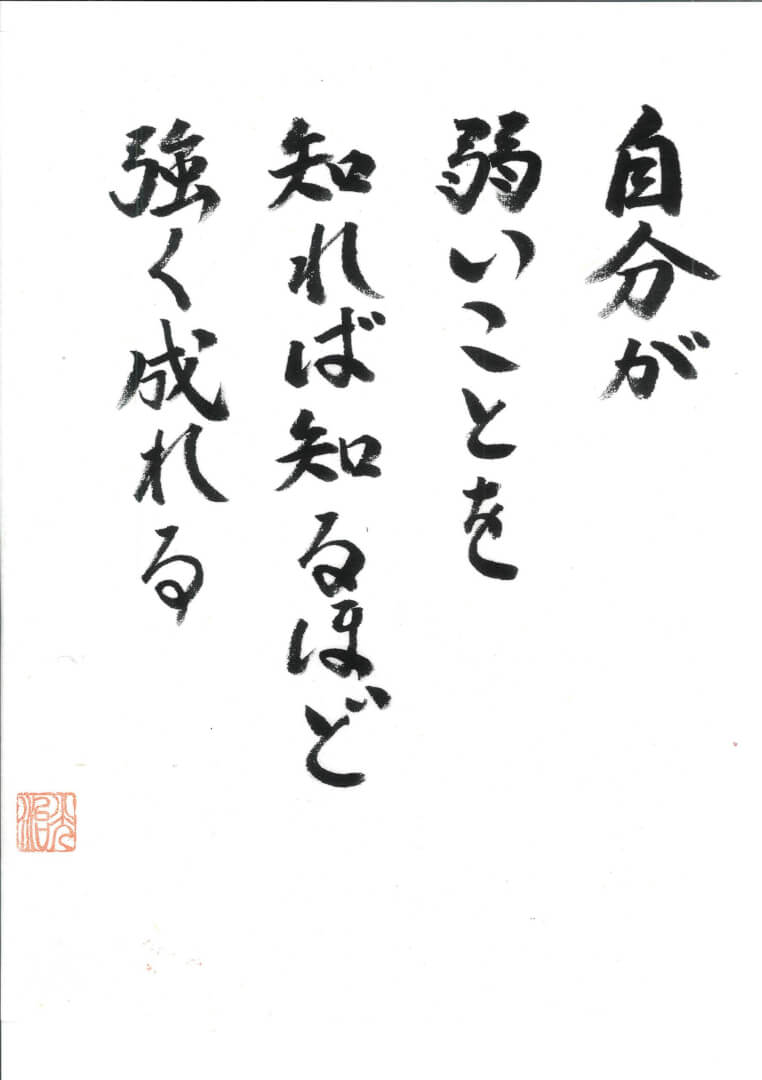 自分が
弱いことを
知れば知るほど
強く成れる